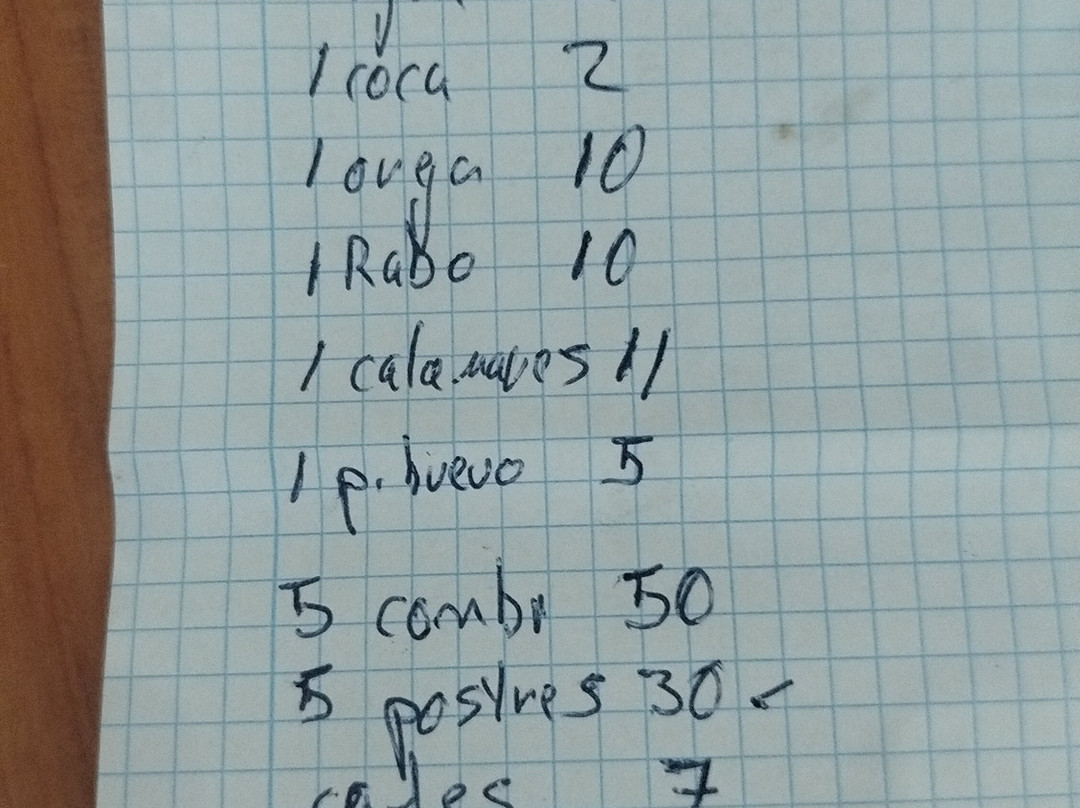 1 coca 2
1 oreja 10
1 Rabo 10
1 calamares 11
1 p. huevo 5
5 combi 50
5 postres 30
cafes 7